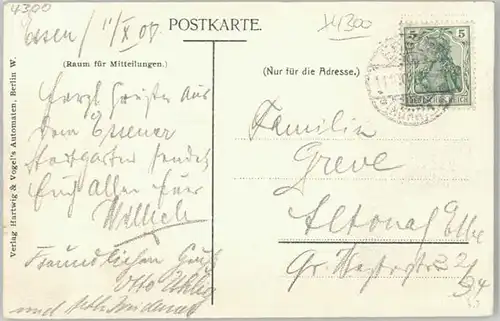 4300
14300
Essen / 11/X 07.
POSTKARTE.
(Raum für Mitteilungen.)
(Nur für die Adresse.)
5 5
DEUTSCHES REICH
Herzl Grüße aus
dem Essener
Stadtgarten sendet
Euch Allen Euer
Willich
Freundlichen Gruß
Otto Uhlig
und
Familie
Greve
Altona Elbe
Gr.
Verlag Hartwig & Vogel's Automaten, Berlin W.